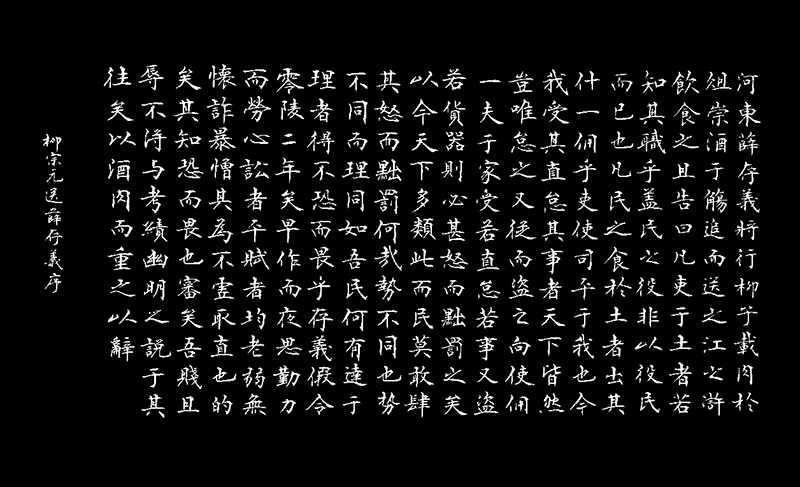 河東薛存義將行柳子載肉於
俎崇酒于觴追而送之江之滸
飲食之且告曰凡吏于土者若
知其職乎蓋民之役非以役民
而已也凡民之食於土者出其
什一佣乎吏使司平于我也今
我受其直怠其事者天下皆然
豈唯怠之又從而盜之向使佣
一夫于家受若直怠若事又盜
若貨器則必甚怒而黜罰之矣
以今天下多類此而民莫敢肆
其怒而黜罰何哉勢不同也勢
不同而理同如吾民何有達于
理者得不恐而畏乎存義假令
零陵二年矣早作而夜思勤力
而勞心訟者平賦者均老弱無
懷詐暴憎其為不虛取直也的
矣其知恐而畏也審矣吾賤且
辱不得与考績幽明之說于其
往矣以酒肉而重之以辭
柳宗元送薛存義序